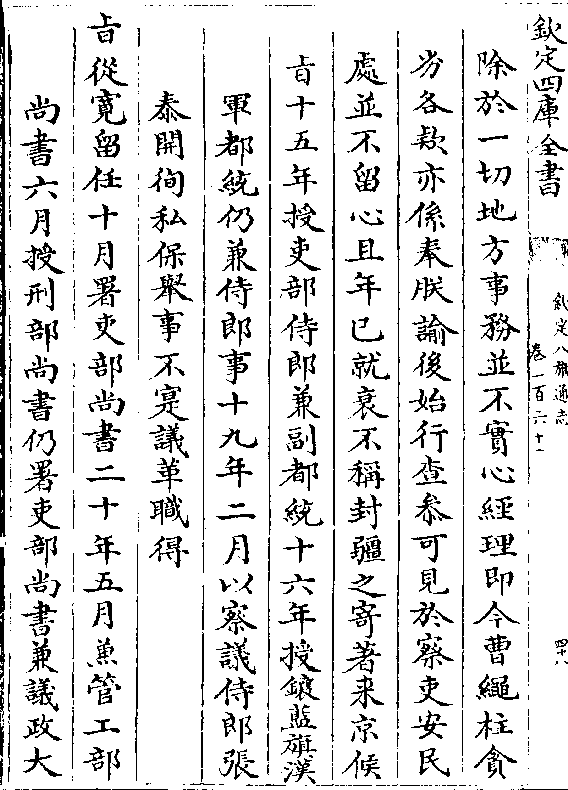 欽定四庫全書
欽定八旗通志
卷一百六十一
四十八
除於一切地方事務並不實心經理即今曹繩柱貪
劣各欵亦係奉朕諭後始行查叅可見於察吏安民
處並不留心且年已就衰不稱封疆之寄著来京候
㫖十五年授吏部侍郎兼副都統十六年授鑲藍旗漢
軍都統仍兼侍郎事十九年二月以察議侍郎張
泰開徇私保舉事不寔議革職得
㫖從寛留任十月署吏部尚書二十年五月兼管工部
尚書六月授刑部尚書仍署吏部尚書兼議政大